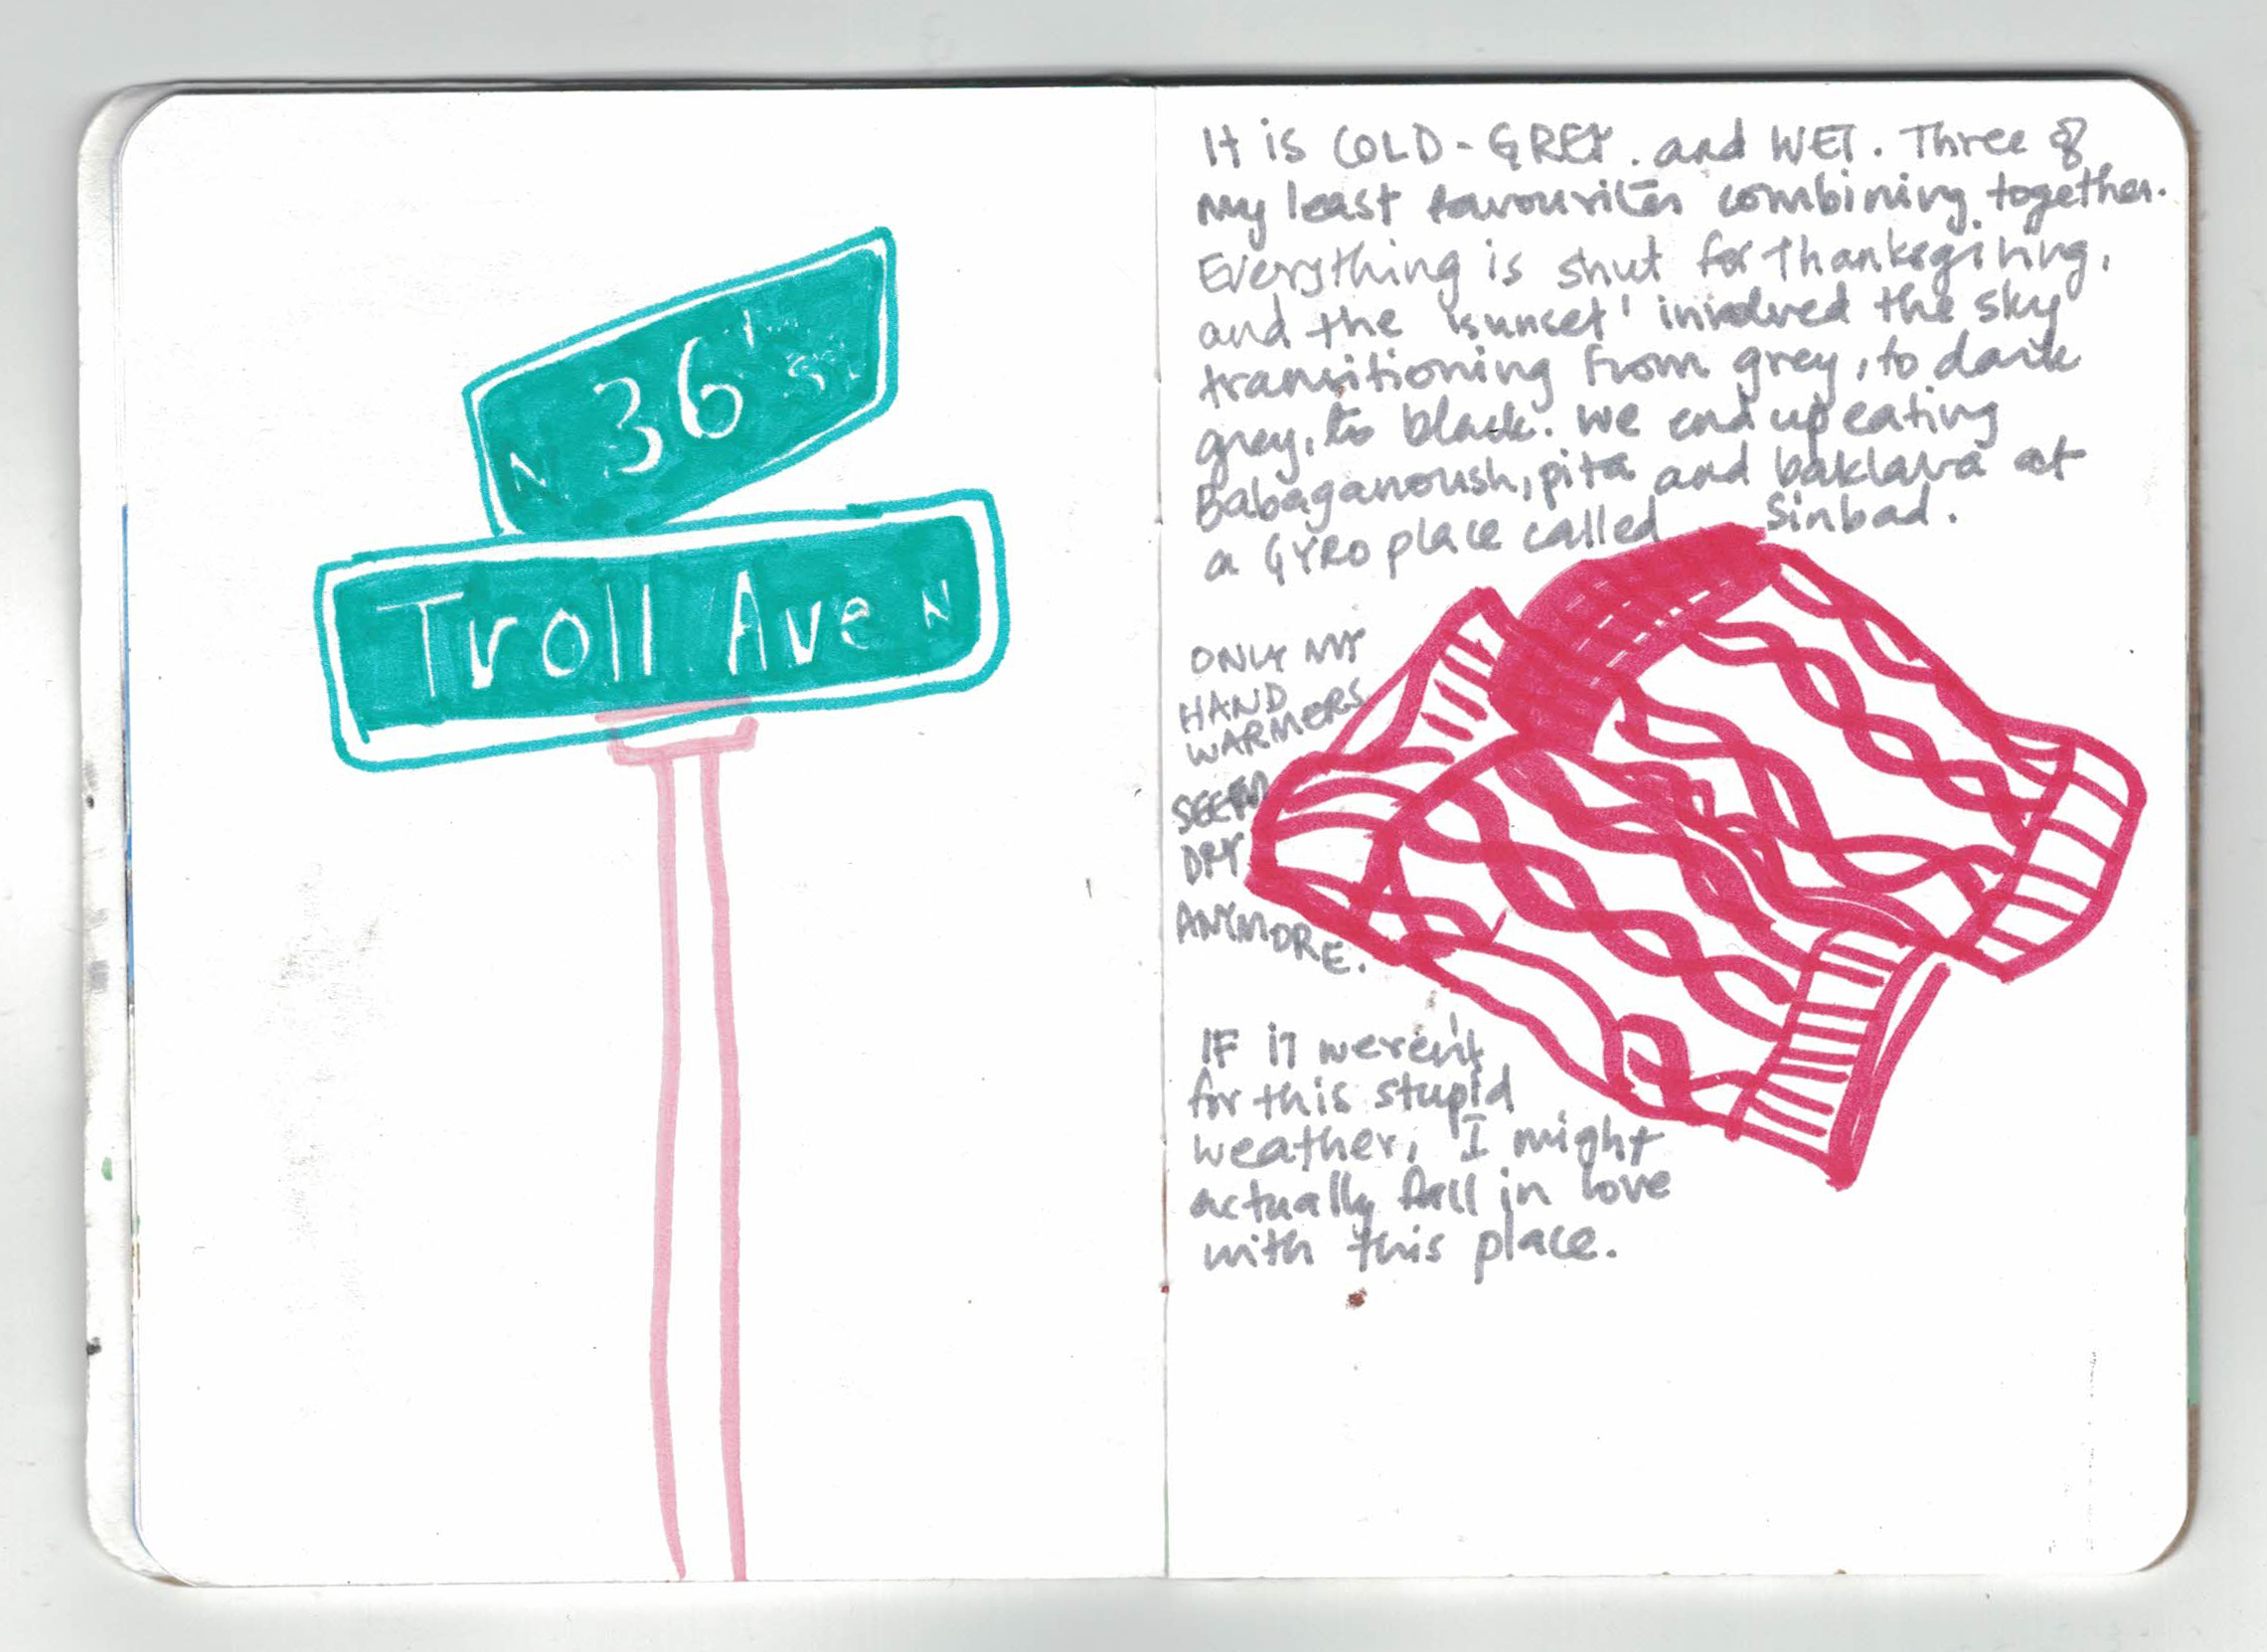 N 36th St
Troll Ave N
It is COLD - GREY. and WET. Three of
my least favourites combining together.
Everything is shut for Thanksgiving,
and the 'sunset' involved the sky
transitioning from grey, to dark
grey, to black. We end up eating
Babaganoush, pita and baklava at
a GYRO place called Sinbad.
ONLY MY
HAND
WARMERS
SEEM
DRY
ANYMORE.
IF it weren't
for this stupid
weather, I might
actually fall in love
with this place.